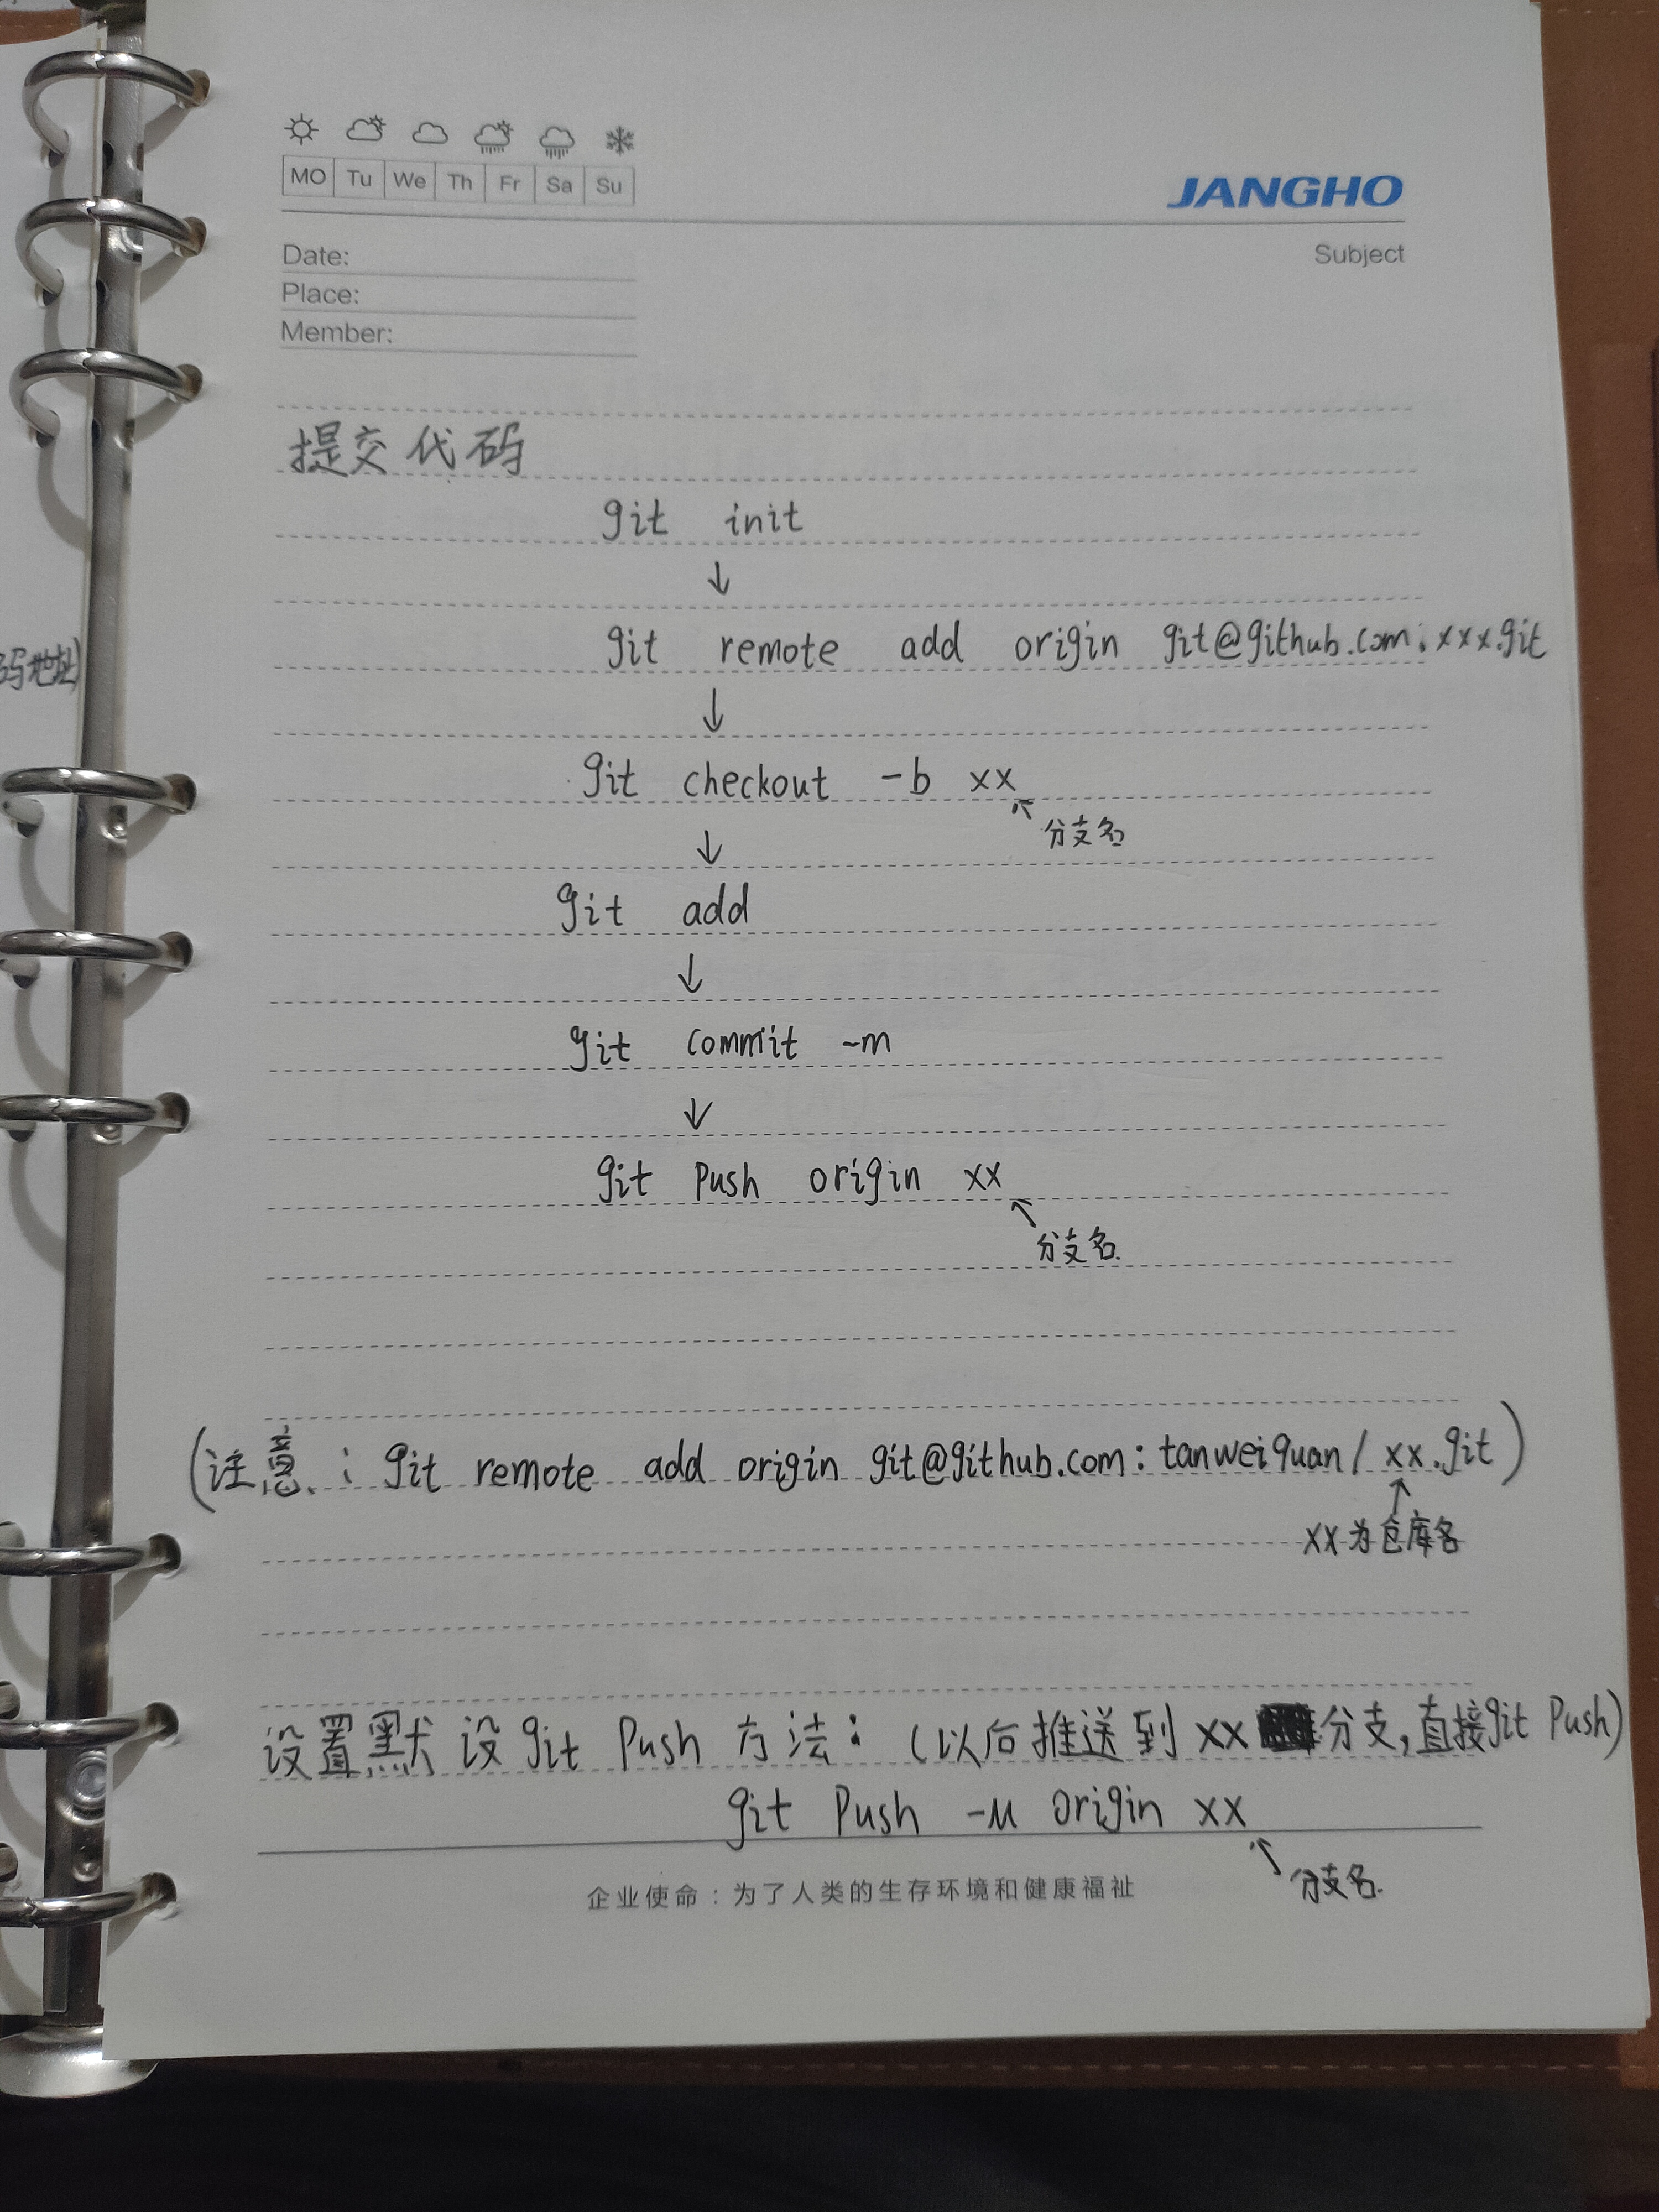 MO Tu We Th Fr Sa Su
JANGHO
Date:
Subject
Place:
Member:
提交代码
git init
↓
git remote add origin git@github.com:xxx.git
码地址)
↓
git checkout -b xx
分支名
↓
git add
↓
git commit -m
↓
git push origin xx
分支名.
(注意: git remote add origin git@github.com: tanweiquan/xx.git)
xx为仓库名
设置默设git push方法: (以后推送到xx分支,直接git push)
git push -u origin xx
分支名.
企业使命:为了人类的生存环境和健康福祉